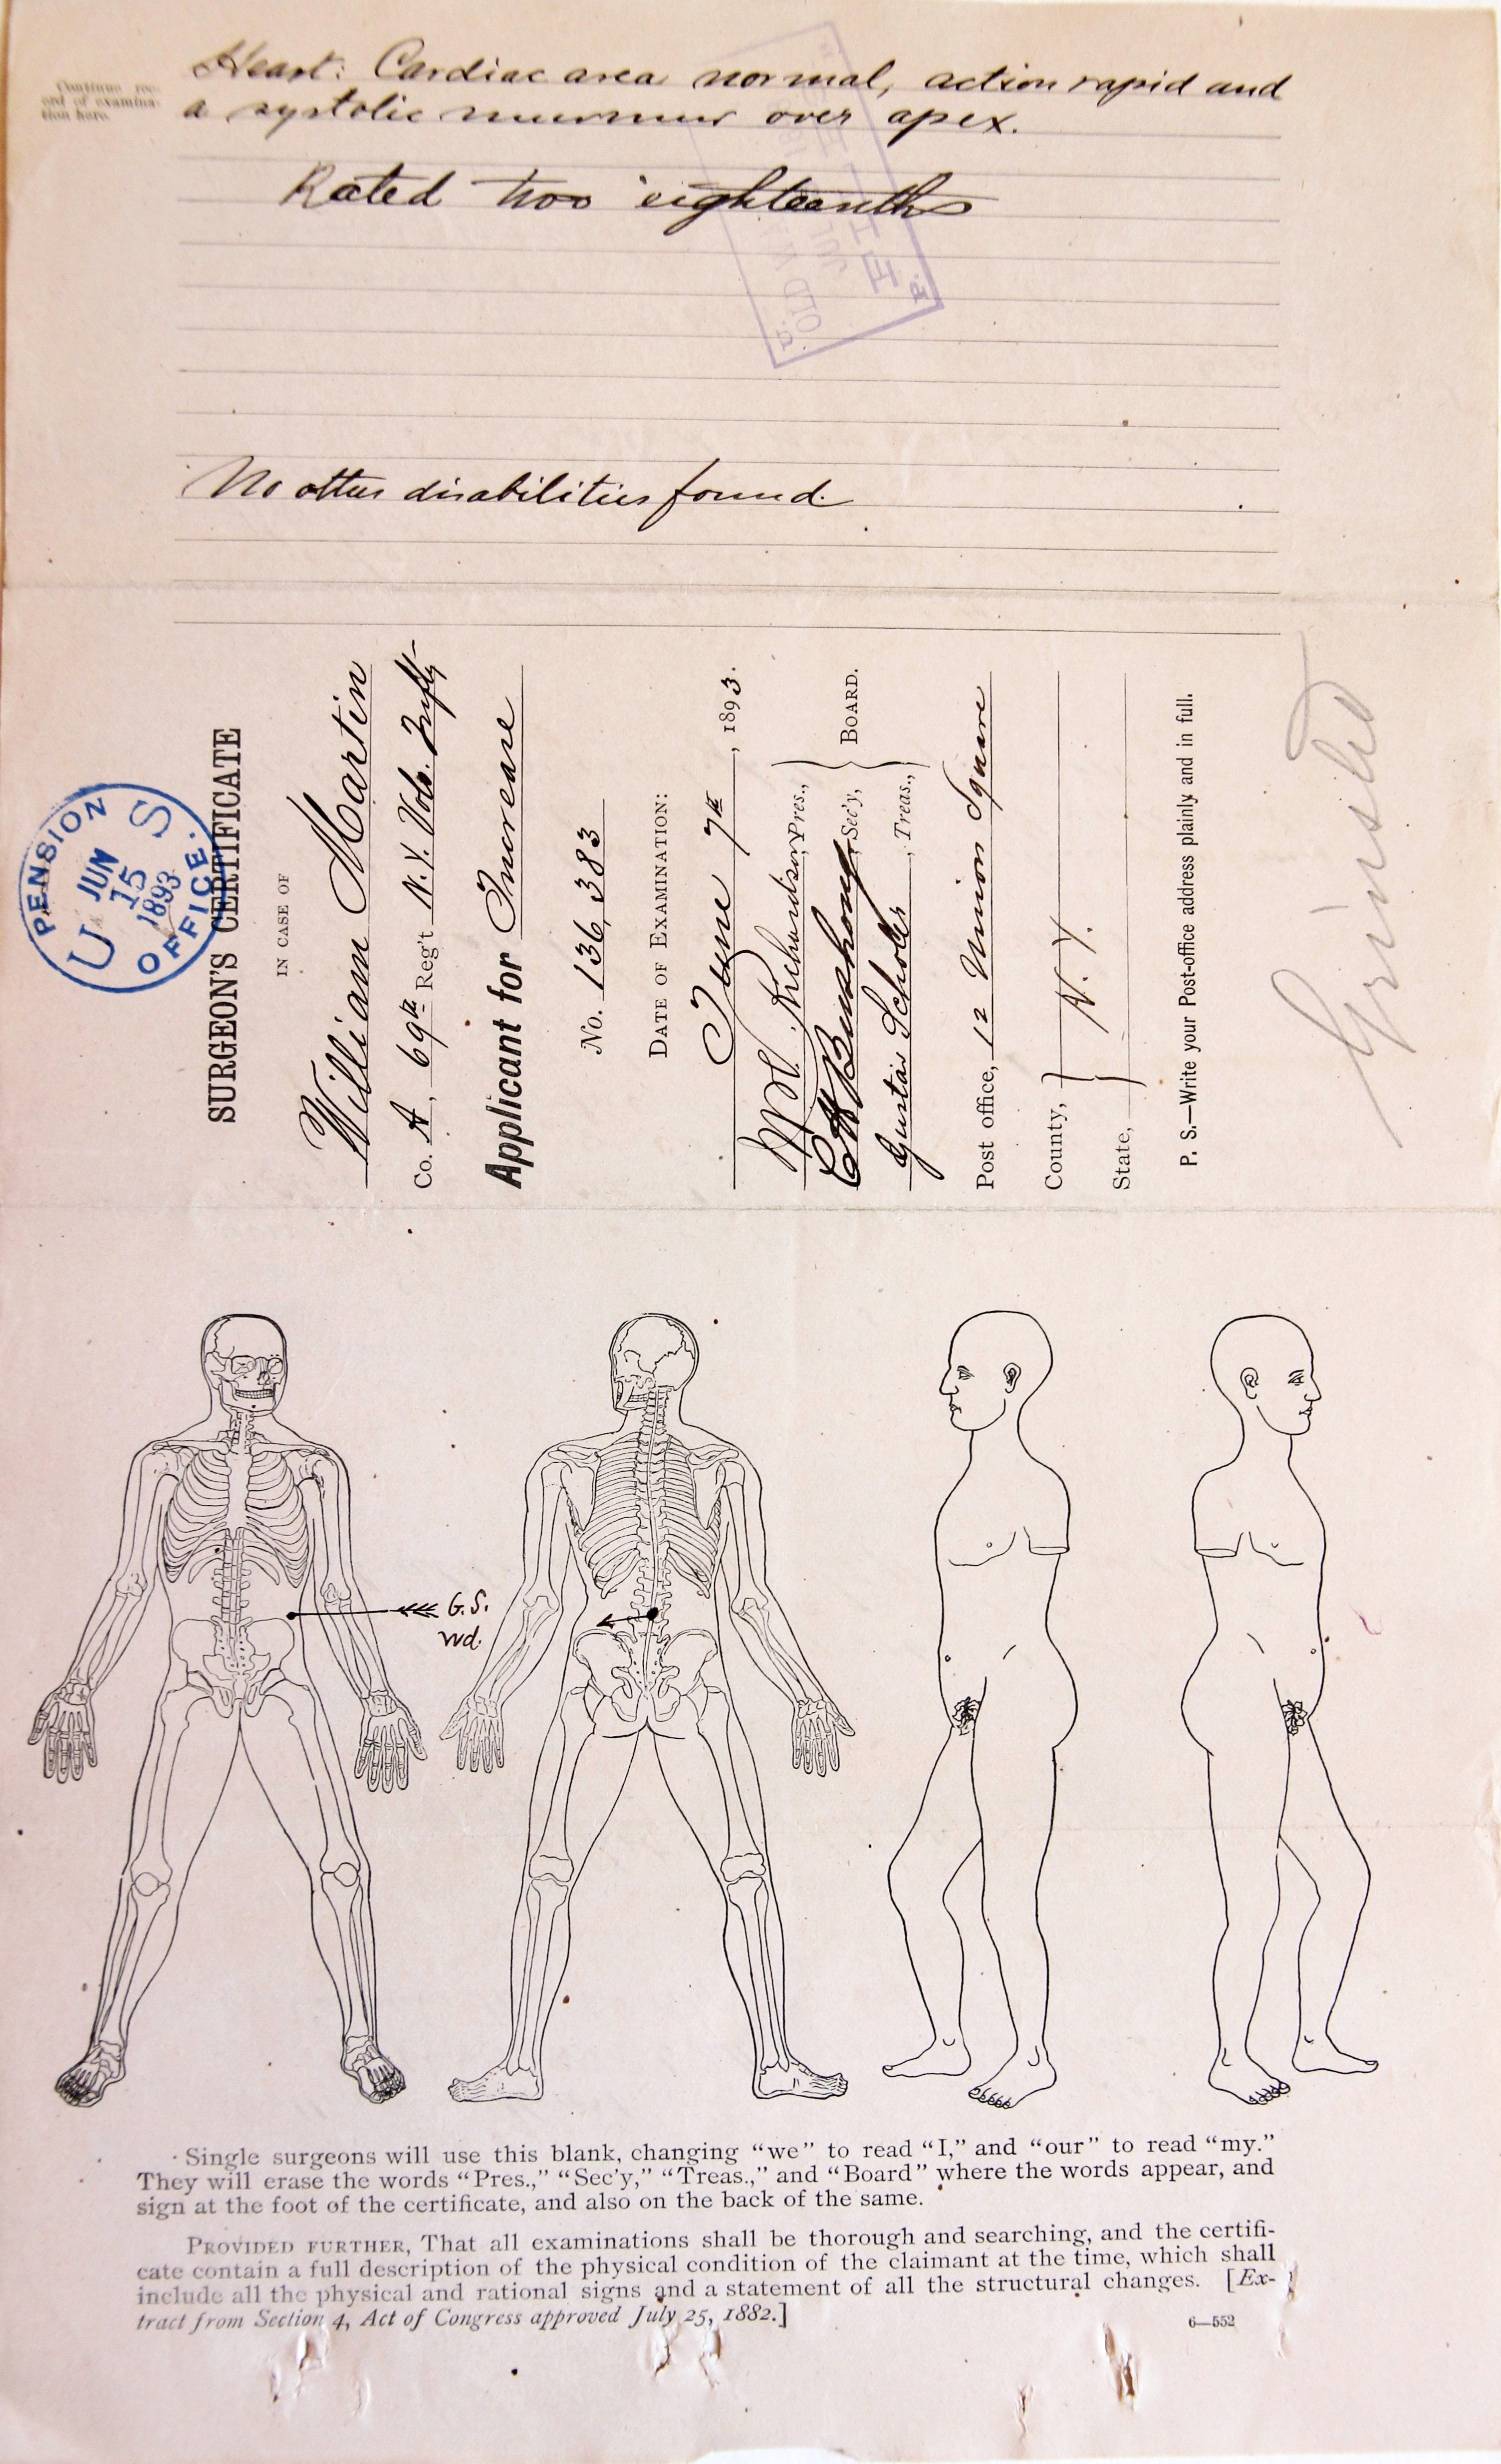 Continue rec-
ord of examina-
tion here.
Heart: Cardiac area normal, action rapid and
a systolic murmur over apex.
Rated two eighteenths
No other disabilities found.
PENSION OFFICE.
U S
JUN
15
1893
SURGEON'S CERTIFICATE
IN CASE OF
William Martin
Co. A, 69th Reg't N.Y. Vols. Infty
Applicant for Increase
No. 136,383
DATE OF EXAMINATION:
June 7th, 1893.
Richardson, Pres.,
Sec'y,
Gustav Scholer, Treas.,
BOARD.
Post office, 12 Union Square
County,
N.Y.
State,
P. S.—Write your Post-office address plainly and in full.
G.S.
Wd.
Single surgeons will use this blank, changing “we” to read “I,” and “our” to read “my.”
They will erase the words “Pres.,” “Sec'y,” “Treas.,” and “Board” where the words appear, and
sign at the foot of the certificate, and also on the back of the same.
PROVIDED FURTHER, That all examinations shall be thorough and searching, and the certifi-
cate contain a full description of the physical condition of the claimant at the time, which shall
include all the physical and rational signs and a statement of all the structural changes. [Ex-
tract from Section 4, Act of Congress approved July 25, 1882.]
6—552